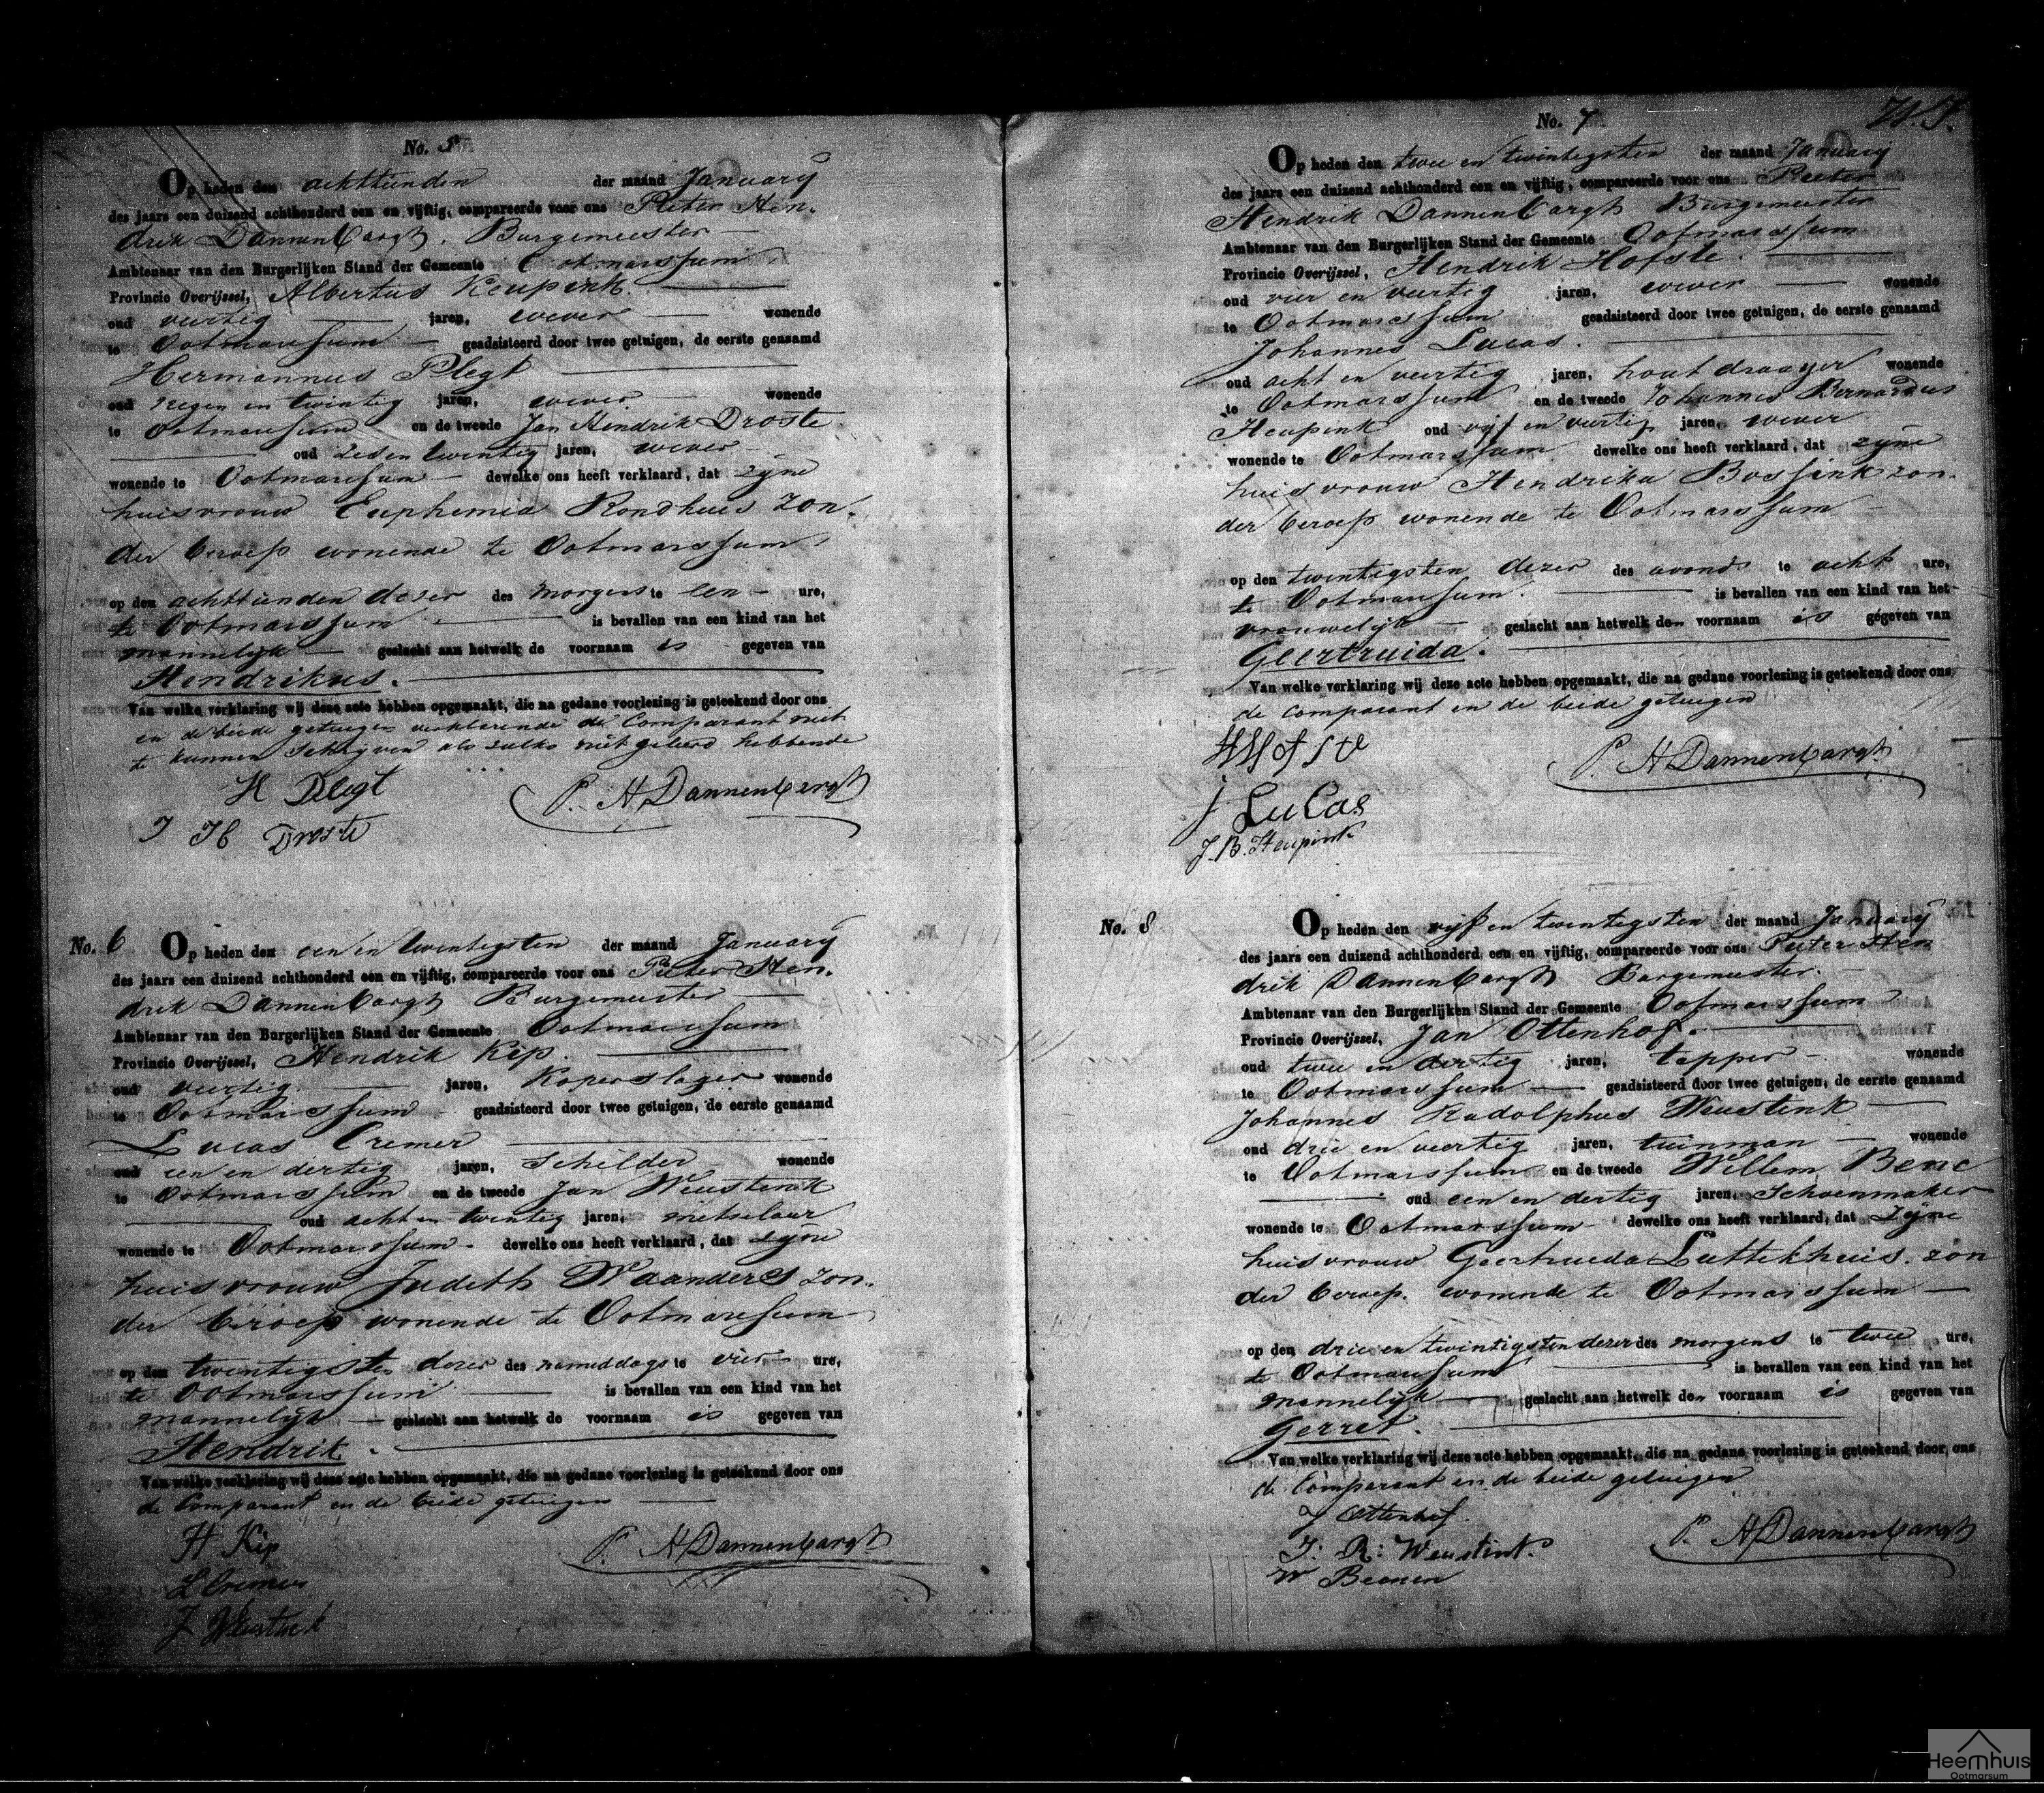 No. 5
Op heden den achttienden der maand January
des jaars een duizend achthonderd een en vijftig, compareerde voor ons Pieter Hen-
drik Dannenbargh. Burgemeester
Ambtenaar van den Burgerlijken Stand der Gemeente Ootmarssum
Provincie Overijssel, Albertus Keupink.
oud veertig jaren, wever wonende
te Ootmarssum geadsisteerd door twee getuigen, de eerste genaamd
Hermannus Plegt
oud negen en twintig jaren, wever wonende
te Ootmarssum en de tweede Jan Hendrik Droste
oud zes en twintig jaren, wever
wonende te Ootmarssum dewelke ons heeft verklaard, dat zyne
huisvrouw Euphemia Rondhuis zon-
der beroep wonende te Ootmarssum
op den achttienden dezer des morgens te een ure,
te Ootmarssum is bevallen van een kind van het
mannelijk geslacht aan hetwelk de voornaam is gegeven van
Hendrikus.
Van welke verklaring wij deze acte hebben opgemaakt, die na gedane voorlezing is geteekend door ons
en de beide getuigen verklarende de Comparant niet
te kunnen schryven als zulks niet geleerd hebbende
H Plegt
P. H Dannenbargh
J H Droste
No. 6 Op heden den een en twintigsten der maand January
des jaars een duizend achthonderd een en vijftig, compareerde voor ons Pieter Hen-
drik Dannenbargh Burgemeester
Ambtenaar van den Burgerlijken Stand der Gemeente Ootmarssum
Provincie Overijssel, Hendrik Kip.
oud veertig jaren, Koperslager wonende
te Ootmarssum geadsisteerd door twee getuigen, de eerste genaamd
Lucas Cremer
oud een en dertig jaren, Schilder wonende
te Ootmarssum en de tweede Jan Weustenk
oud acht en twintig jaren, metselaar
wonende te Ootmarssum dewelke ons heeft verklaard, dat zyne
huisvrouw Judith Waanders zon-
der beroep wonende te Ootmarssum
op den twintigsten dezer des namiddags te vier ure,
te Ootmarssum is bevallen van een kind van het
mannelijk geslacht aan hetwelk de voornaam is gegeven van
Hendrik.
Van welke verklaring wij deze acte hebben opgemaakt, die na gedane voorlezing is geteekend door ons
de Comparant en de beide getuigen
H Kip
P. H Dannenbargh
L Cremer
J Weustenk
No. 7
Op heden den twee en twintigsten der maand January
des jaars een duizend achthonderd een en vijftig, compareerde voor ons Pieter
Hendrik Dannenbargh Burgemeester
Ambtenaar van den Burgerlijken Stand der Gemeente Ootmarssum
Provincie Overijssel, Hendrik Hofste.
oud vier en veertig jaren, wever wonende
te Ootmarssum geadsisteerd door twee getuigen, de eerste genaamd
Johannes Lucas.
oud acht en veertig jaren, houtdraayer wonende
te Ootmarssum en de tweede Johannes Bernardus
Heupink oud vijf en veertig jaren, wever
wonende te Ootmarssum dewelke ons heeft verklaard, dat zyne
huisvrouw Hendrika Bossink zon-
der beroep wonende te Ootmarssum
op den twintigsten dezer des avonds te acht ure,
te Ootmarssum. is bevallen van een kind van het
vrouwelijk geslacht aan hetwelk de voornaam is gegeven van
Geertruida.
Van welke verklaring wij deze acte hebben opgemaakt, die na gedane voorlezing is geteekend door ons
de Comparant en de beide getuigen
H Hofste
P. H Dannenbargh
J Lucas
J. B. Heupink
No. 8 Op heden den vijf en twintigsten der maand January
des jaars een duizend achthonderd een en vijftig, compareerde voor ons Pieter Hen
drik Dannenbargh Burgemeester.
Ambtenaar van den Burgerlijken Stand der Gemeente Ootmarssum
Provincie Overijssel, Jan Ottenhof.
oud twee en dertig jaren, tapper wonende
te Ootmarssum geadsisteerd door twee getuigen, de eerste genaamd
Johannes Rudolphus Weustenk
oud drie en veertig jaren, tuinman wonende
te Ootmarssum en de tweede Willem Bene
oud een en dertig jaren, Schoenmaker
wonende te Ootmarssum dewelke ons heeft verklaard, dat Zyne
huisvrouw Geertruida Luttikhuis. zon
der beroep. wonende te Ootmarssum
op den drie en twintigsten dezer des morgens te twee ure,
te Ootmarssum is bevallen van een kind van het
mannelijk geslacht aan hetwelk de voornaam is gegeven van
Gerret.
Van welke verklaring wij deze acte hebben opgemaakt, die na gedane voorlezing is geteekend door ons
de Comparant en de beide getuigen
J Ottenhof.
P. H Dannenbargh
J: R: Weustink.
W Beenen
Heemhuis
Ootmarsum